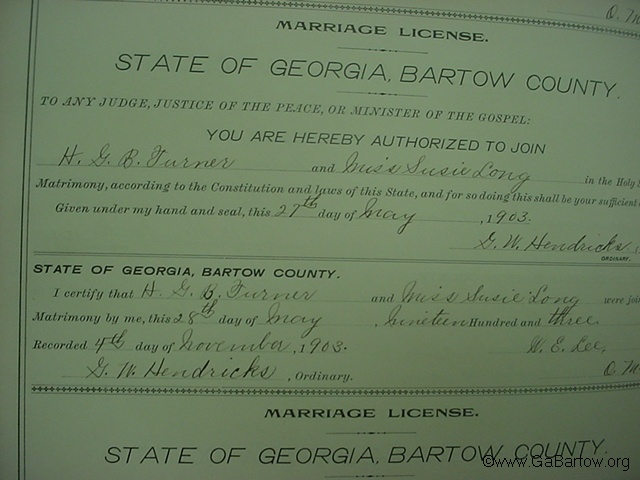 O. M
MARRIAGE LICENSE.
STATE OF GEORGIA, BARTOW COUNTY.
TO ANY JUDGE, JUSTICE OF THE PEACE, OR MINISTER OF THE GOSPEL:
YOU ARE HEREBY AUTHORIZED TO JOIN
H. G. B. Turner and Miss Susie Long in the Holy S
Matrimony, according to the Constitution and laws of this State, and for so doing this shall be your sufficient
Given under my hand and seal, this 27th day of May, 1903.
G. W. Hendricks
ORDINARY.
STATE OF GEORGIA, BARTOW COUNTY.
I certify that H. G. B. Turner and Miss Susie Long were join
Matrimony by me, this 28th day of May, Nineteen Hundred and three.
Recorded 4th day of November, 1903. W. E. Lee,
G. W. Hendricks, Ordinary. O. M
MARRIAGE LICENSE.
STATE OF GEORGIA, BARTOW COUNTY.
©www.GaBartow.org